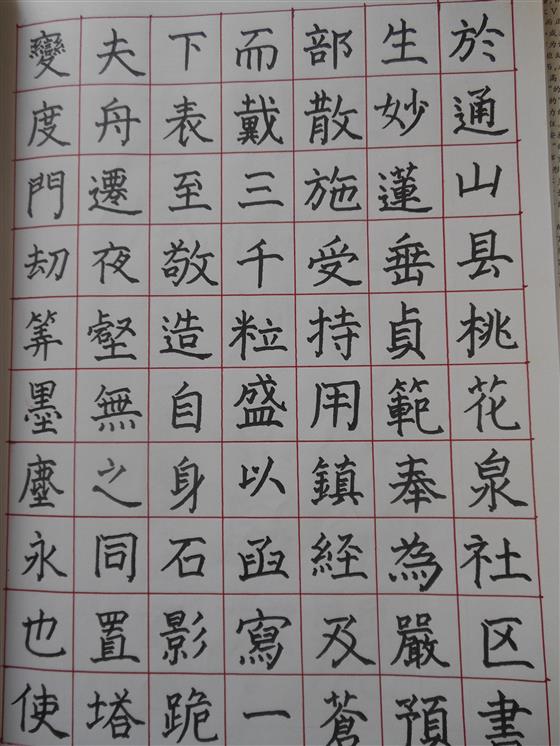 變度門劫筭墨塵永也使
夫舟遷夜壑無之同置塔
下表至敬造自身石影跪
而戴三千粒盛以函寫一
部散施受持用鎮経及蒼
生妙蓮垂貞範奉為嚴預
於通山县桃花泉社区書